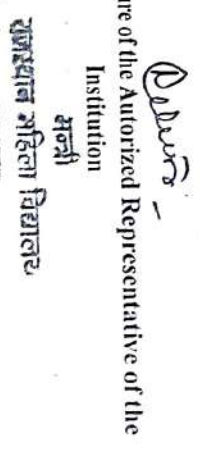 re of the Autorized Representative of the
Institution
मन्त्री
राजस्थान महिला विद्यालय